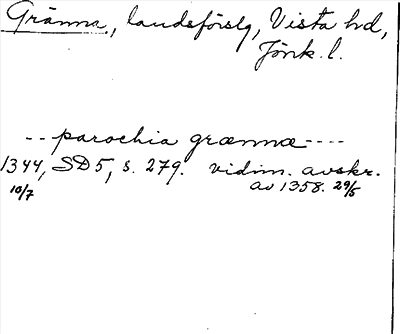 Gränna, landsförsg, Vista hd,
Jönk. l.
-- parochia grænnæ ----
1344, SD 5, s. 279. vidim. avskr.
10/7 av 1358. 29/5